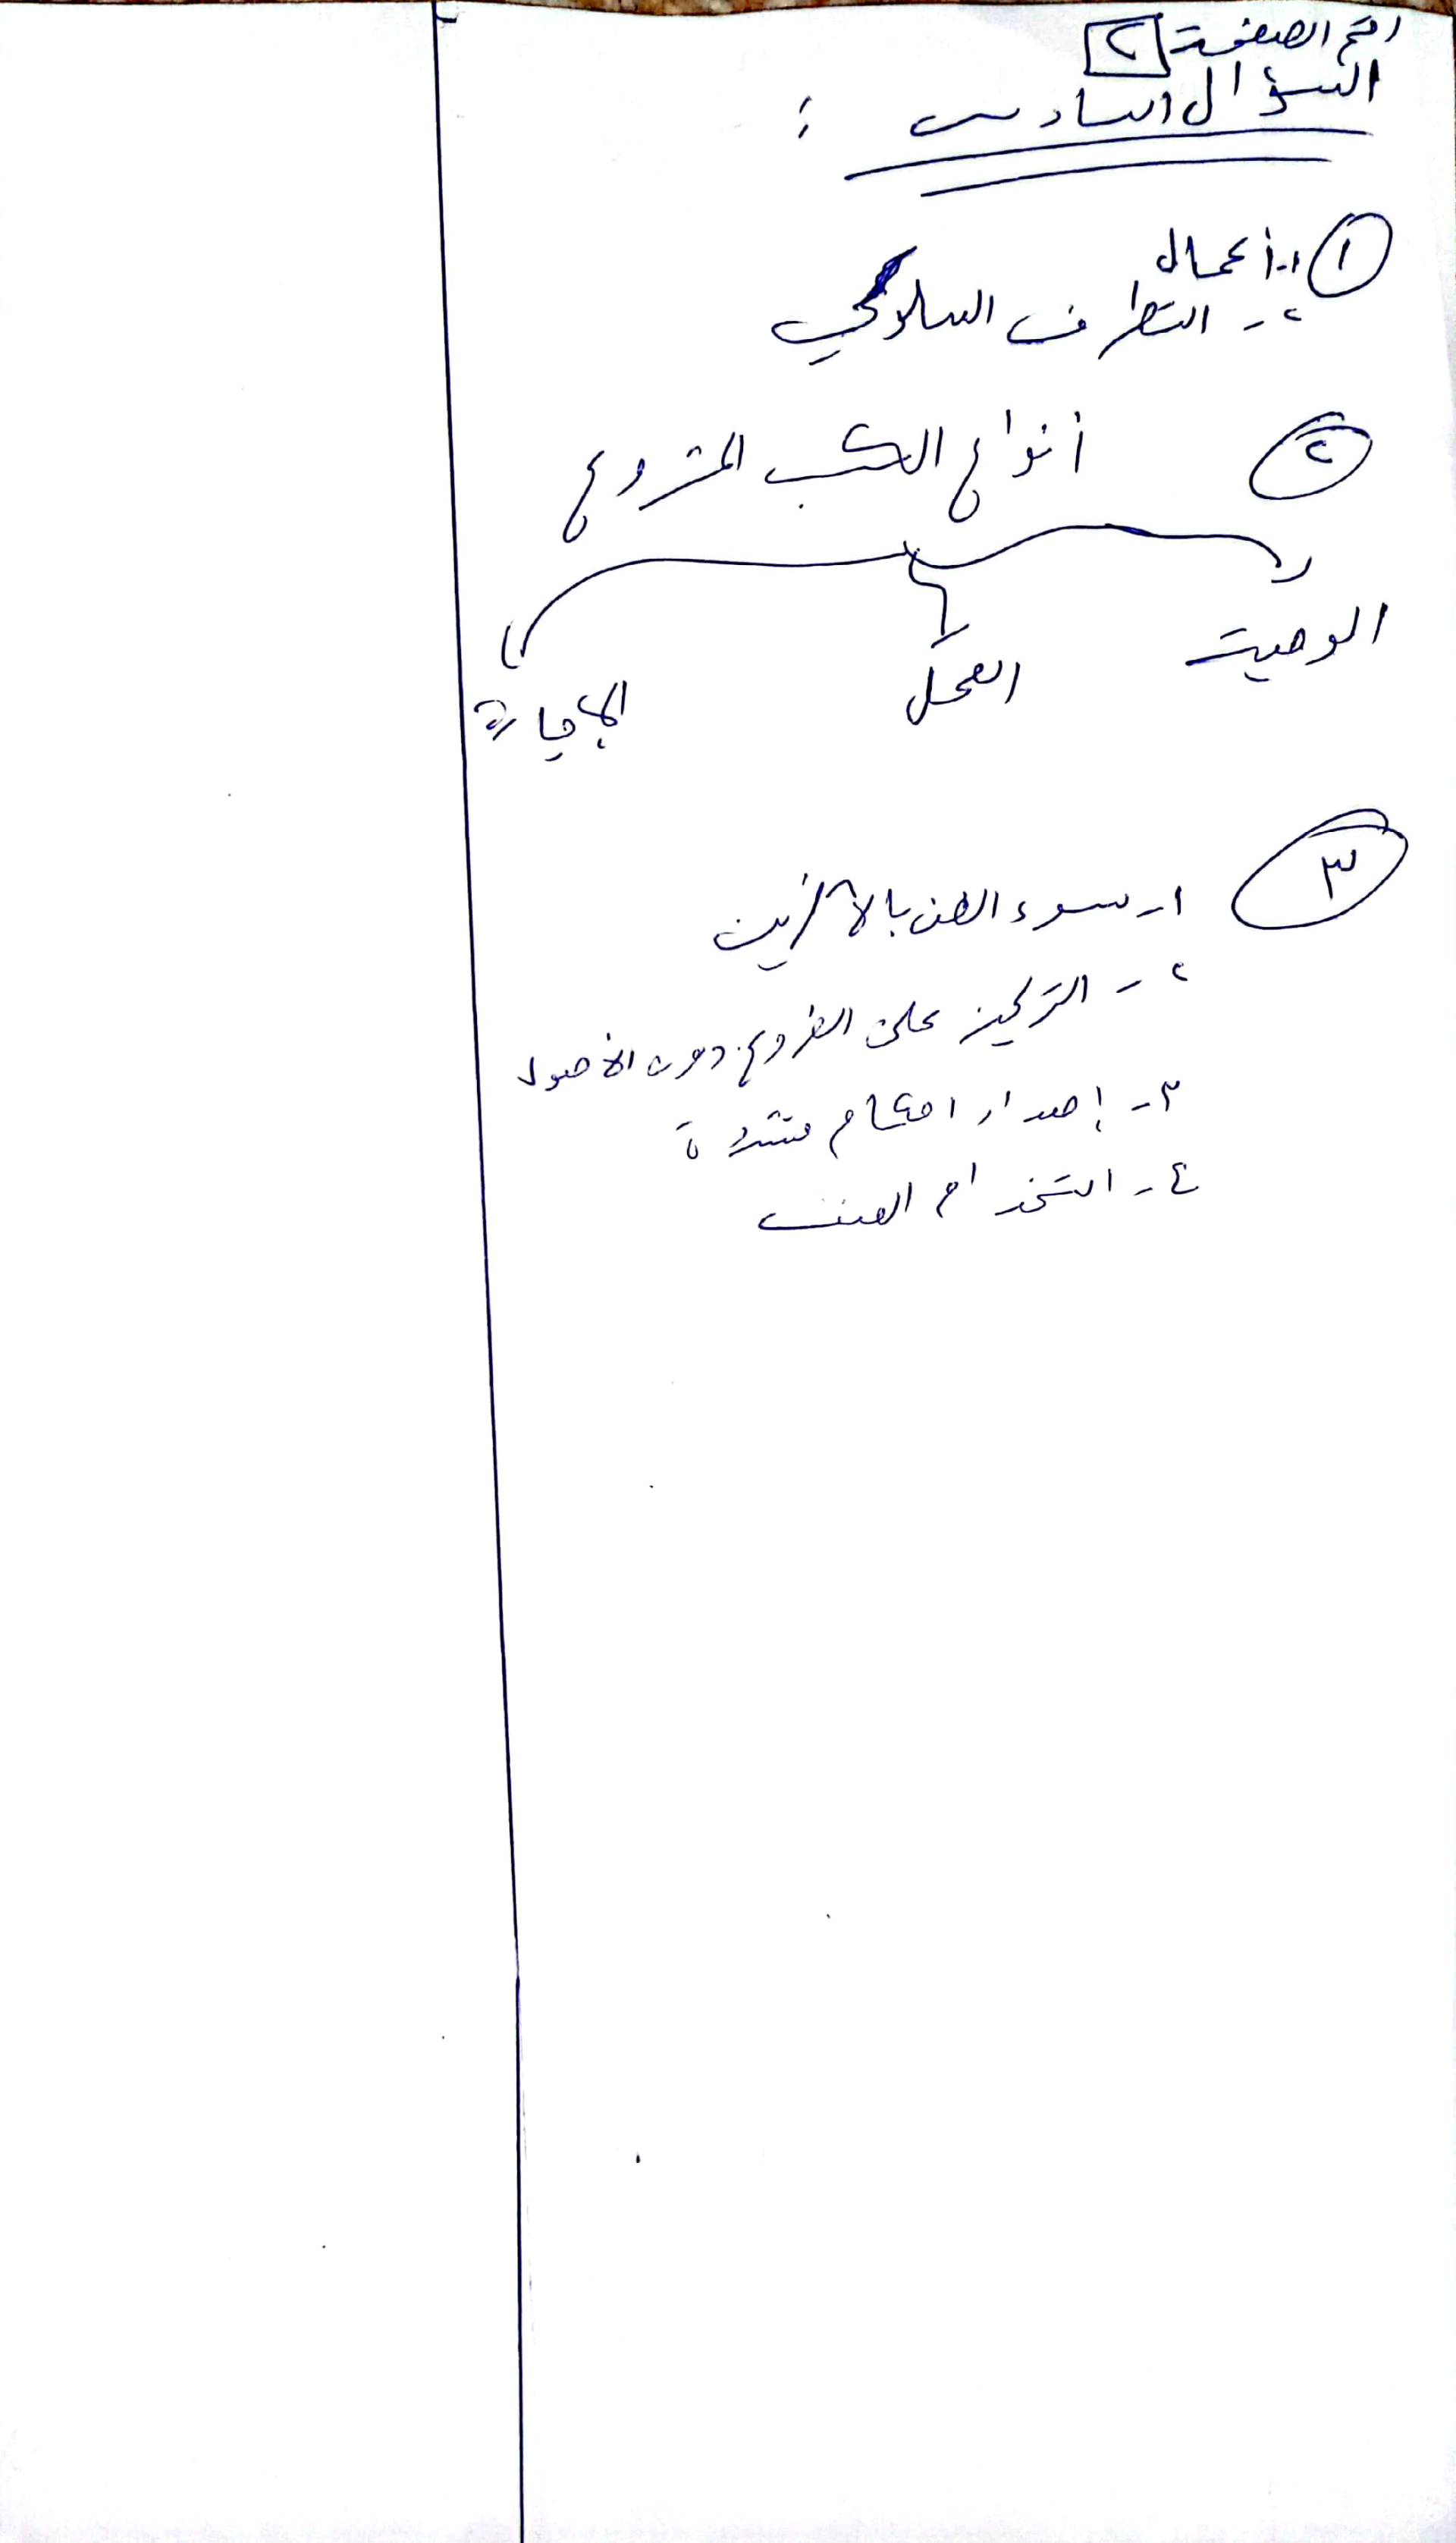 رقم الصفحة ٢
السؤال السادس :
١ ١- أعمال
٢- التطرف السلوكي
٢ أنواع الكسب المشروع
الوصية العمل الإجارة
٣ ١- سوء الظن بالآخرين
٢- التركيز على الفروع دون الأصول
٣- إصدار احكام متشددة
٤- استخدام العنف